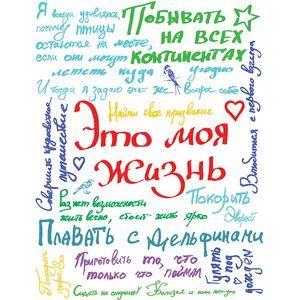 Я всегда удивлялся,
почему птицы
остаются на месте,
если они могут
лететь куда угодно
И тогда я задаю этот же Вопрос себе
Побывать
на всех
континентах
Найти свое призвание
Влюбиться с первого взгляда
Совершить кругосветное
путешествие
Это моя
жизнь
Раз нет возможности
жить вечно, стоит жить ярко
Покорить
Эверест
Плавать с дельфинами
Посадить
дерево
Приготовить то, что
только что поймал
Гулять
под
дождём